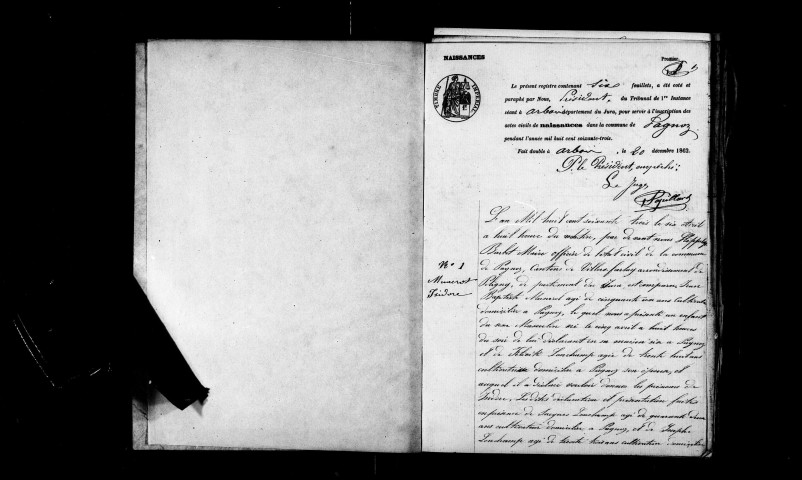 NAISSANCES
Premier
TIMBRE IMPERIAL
Le présent registre contenant six feuillets, a été coté et
paraphé par Nous, Président, du Tribunal de 1re Instance
séant à Arbois département du Jura, pour servir à l'inscription des
actes civils de naissances dans la commune de Pagnoz
pendant l'année mil huit cent soixante-trois.
Fait double à Arbois, le 20 décembre 1862.
P. le Président, empêché:
Le Juge
L'an Mil huit cent soixante trois le six Avril
a huit heure du par devant nous
Maire officier de l'état civil de la commune
N° 1
de Pagnoz, Canton de Villers farlay arrondissement de
Isidore
département du Jura, est comparu Jean
Baptiste agé de cinquante un ans cultivateur
domicilier a Pagnoz, le quel nous a présenté un enfant
du sexe Masculin né le cinq avril a huit heures
du soir de lui déclarant en sa maison sise a Pagnoz
et de Longchamp agée de trente huit ans
domicilier a Pagnoz son épouse, et
auquel il a déclaré vouloir donner les prénoms de
Isidore, Les dites déclaration et présentation faites
en présence de Jacques Longchamp agé de quarante
ans cultivateur domicilier a Pagnoz, et de Joseph
Longchamp agé de trente ans cultivateur domicilier